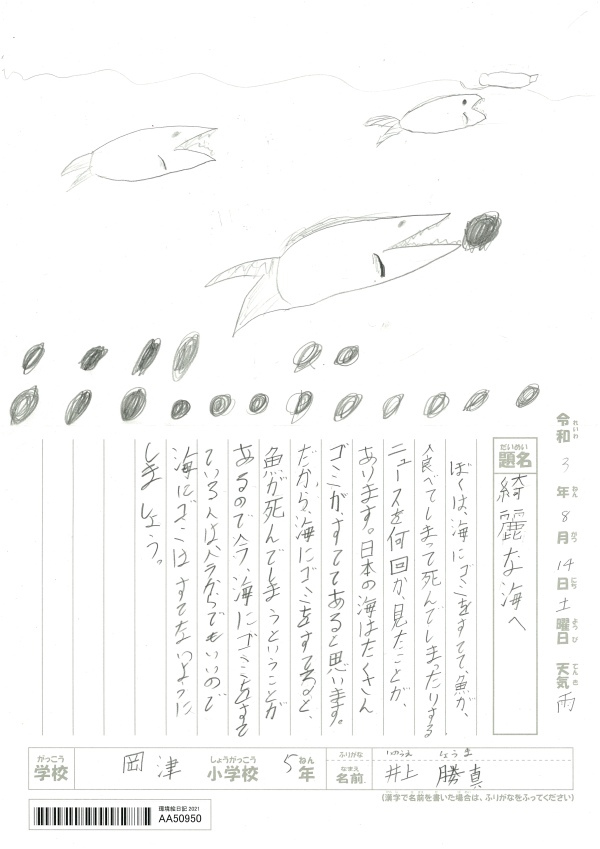 令和3年8月14日土曜日 天気 雨
れいわ ねん がつ にち ようび てんき
だいめい
題名 綺麗な海へ
ぼくは、海にゴミをすてて、魚が、
食べてしまって死んでしまったりする
ニュースを何回か、見たことが、
あります。日本の海はたくさん
ゴミが、すててあると思います。
だから、海にゴミをすてると、
魚が死んでしまうということが
あるので今、海にゴミをすて
ている人はバラバラでもいいので
海にゴミはすてないように
しましょう。
がっこう しょうがっこう ねん
学校 岡津 小学校 5年
ふりがな いのうえ しょうま
なまえ
名前 井上 勝真
(漢字で名前を書いた場合は、ふりがなをふってください)
環境絵日記 2021
AA50950